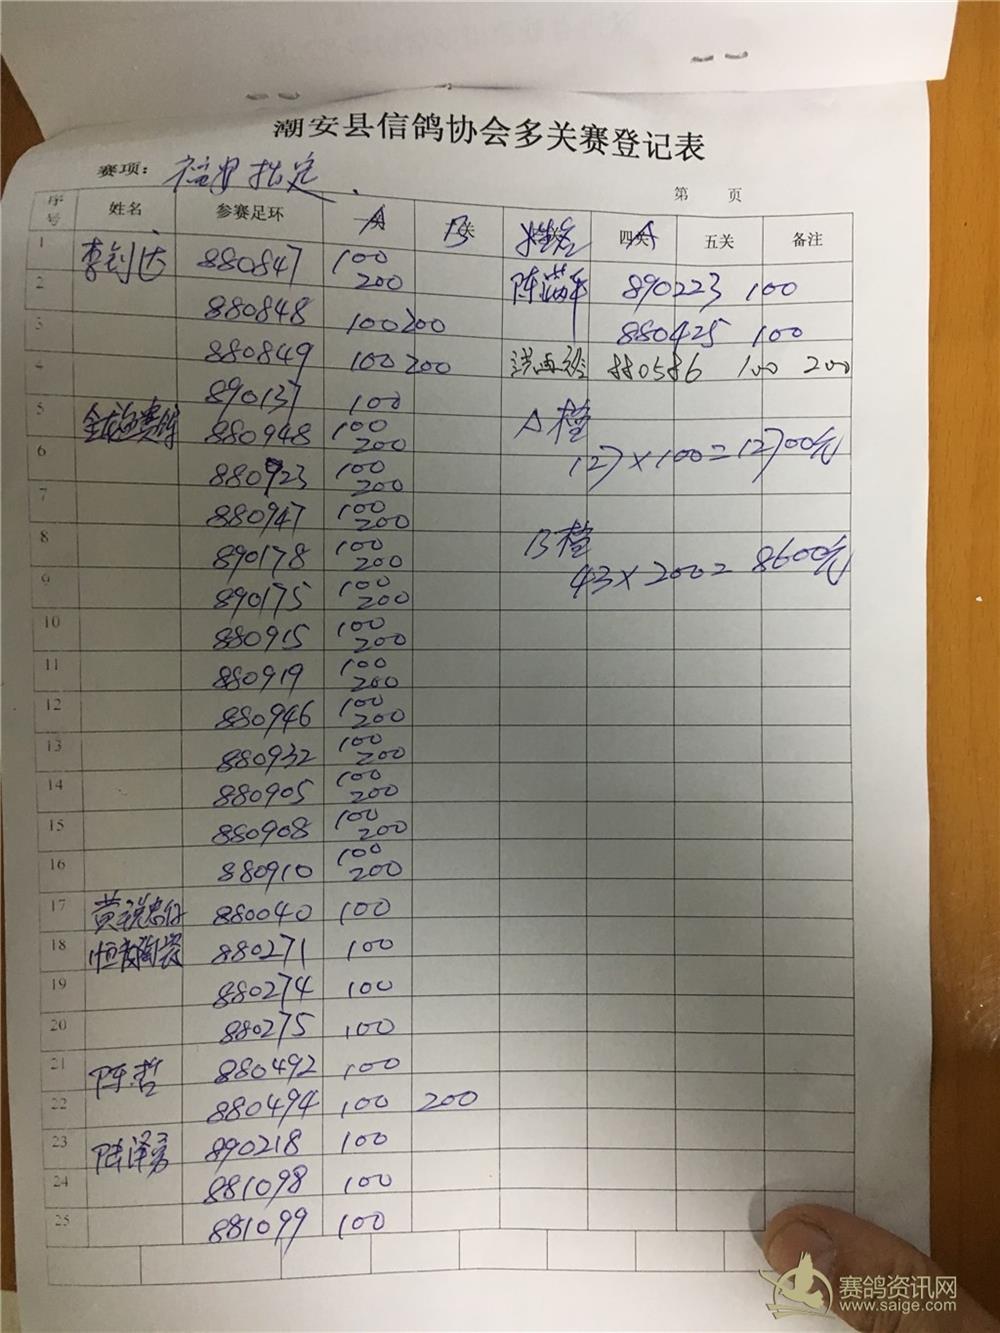 潮安县信鸽协会多关赛登记表
赛项: 指定
第 页
序号 姓名 参赛足环 A B 关 姓名 四关 A 五关 备注
1 李钊达 880847 100 200 陈 890223 100
2 880848 100 200 880425 100
3 880849 100 200 880586 100 200
4 890137 100 A档
5 880948 100 200 127×100=12700元
6 880923 100 200
7 880947 100 200 B档
8 890178 100 200 43×200=8600元
9 890175 100 200
10 880915 100 200
11 880919 100 200
12 880946 100 200
13 880932 100 200
14 880905 100 200
15 880908 100 200
16 880910 100 200
17 黄 880040 100
18 恒 陶瓷 880271 100
19 880274 100
20 880275 100
21 陈哲 880492 100
22 880494 100 200
23 陆泽 890218 100
24 881098 100
25 881099 100
赛鸽资讯网
www.saige.com